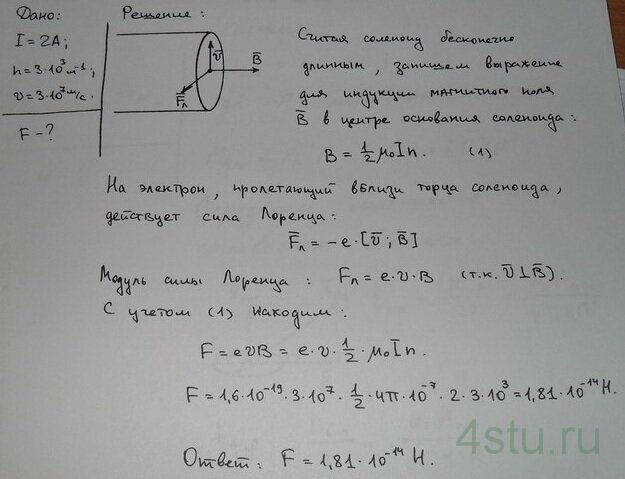 Дано:
I = 2A;
n = 3·10³ м⁻¹;
υ = 3·10⁷ м/с.
F - ?
Решение:
ῡ
B̄
F̄л
Считая соленоид бесконечно
длинным, запишем выражение
для индукции магнитного поля
B̄ в центре основания соленоида:
B = ½ μ₀ I n. (1)
На электрон, пролетающий вблизи торца соленоида,
действует сила Лоренца:
F̄л = -e·[ῡ; B̄]
Модуль силы Лоренца: Fл = e·υ·B (т.к. ῡ⊥B̄).
С учетом (1) находим:
F = eυB = e·υ·½·μ₀In.
F = 1,6·10⁻¹⁹·3·10⁷·½·4π·10⁻⁷·2·3·10³ = 1,81·10⁻¹⁴ Н.
Ответ: F = 1,81·10⁻¹⁴ Н.
4stu.ru